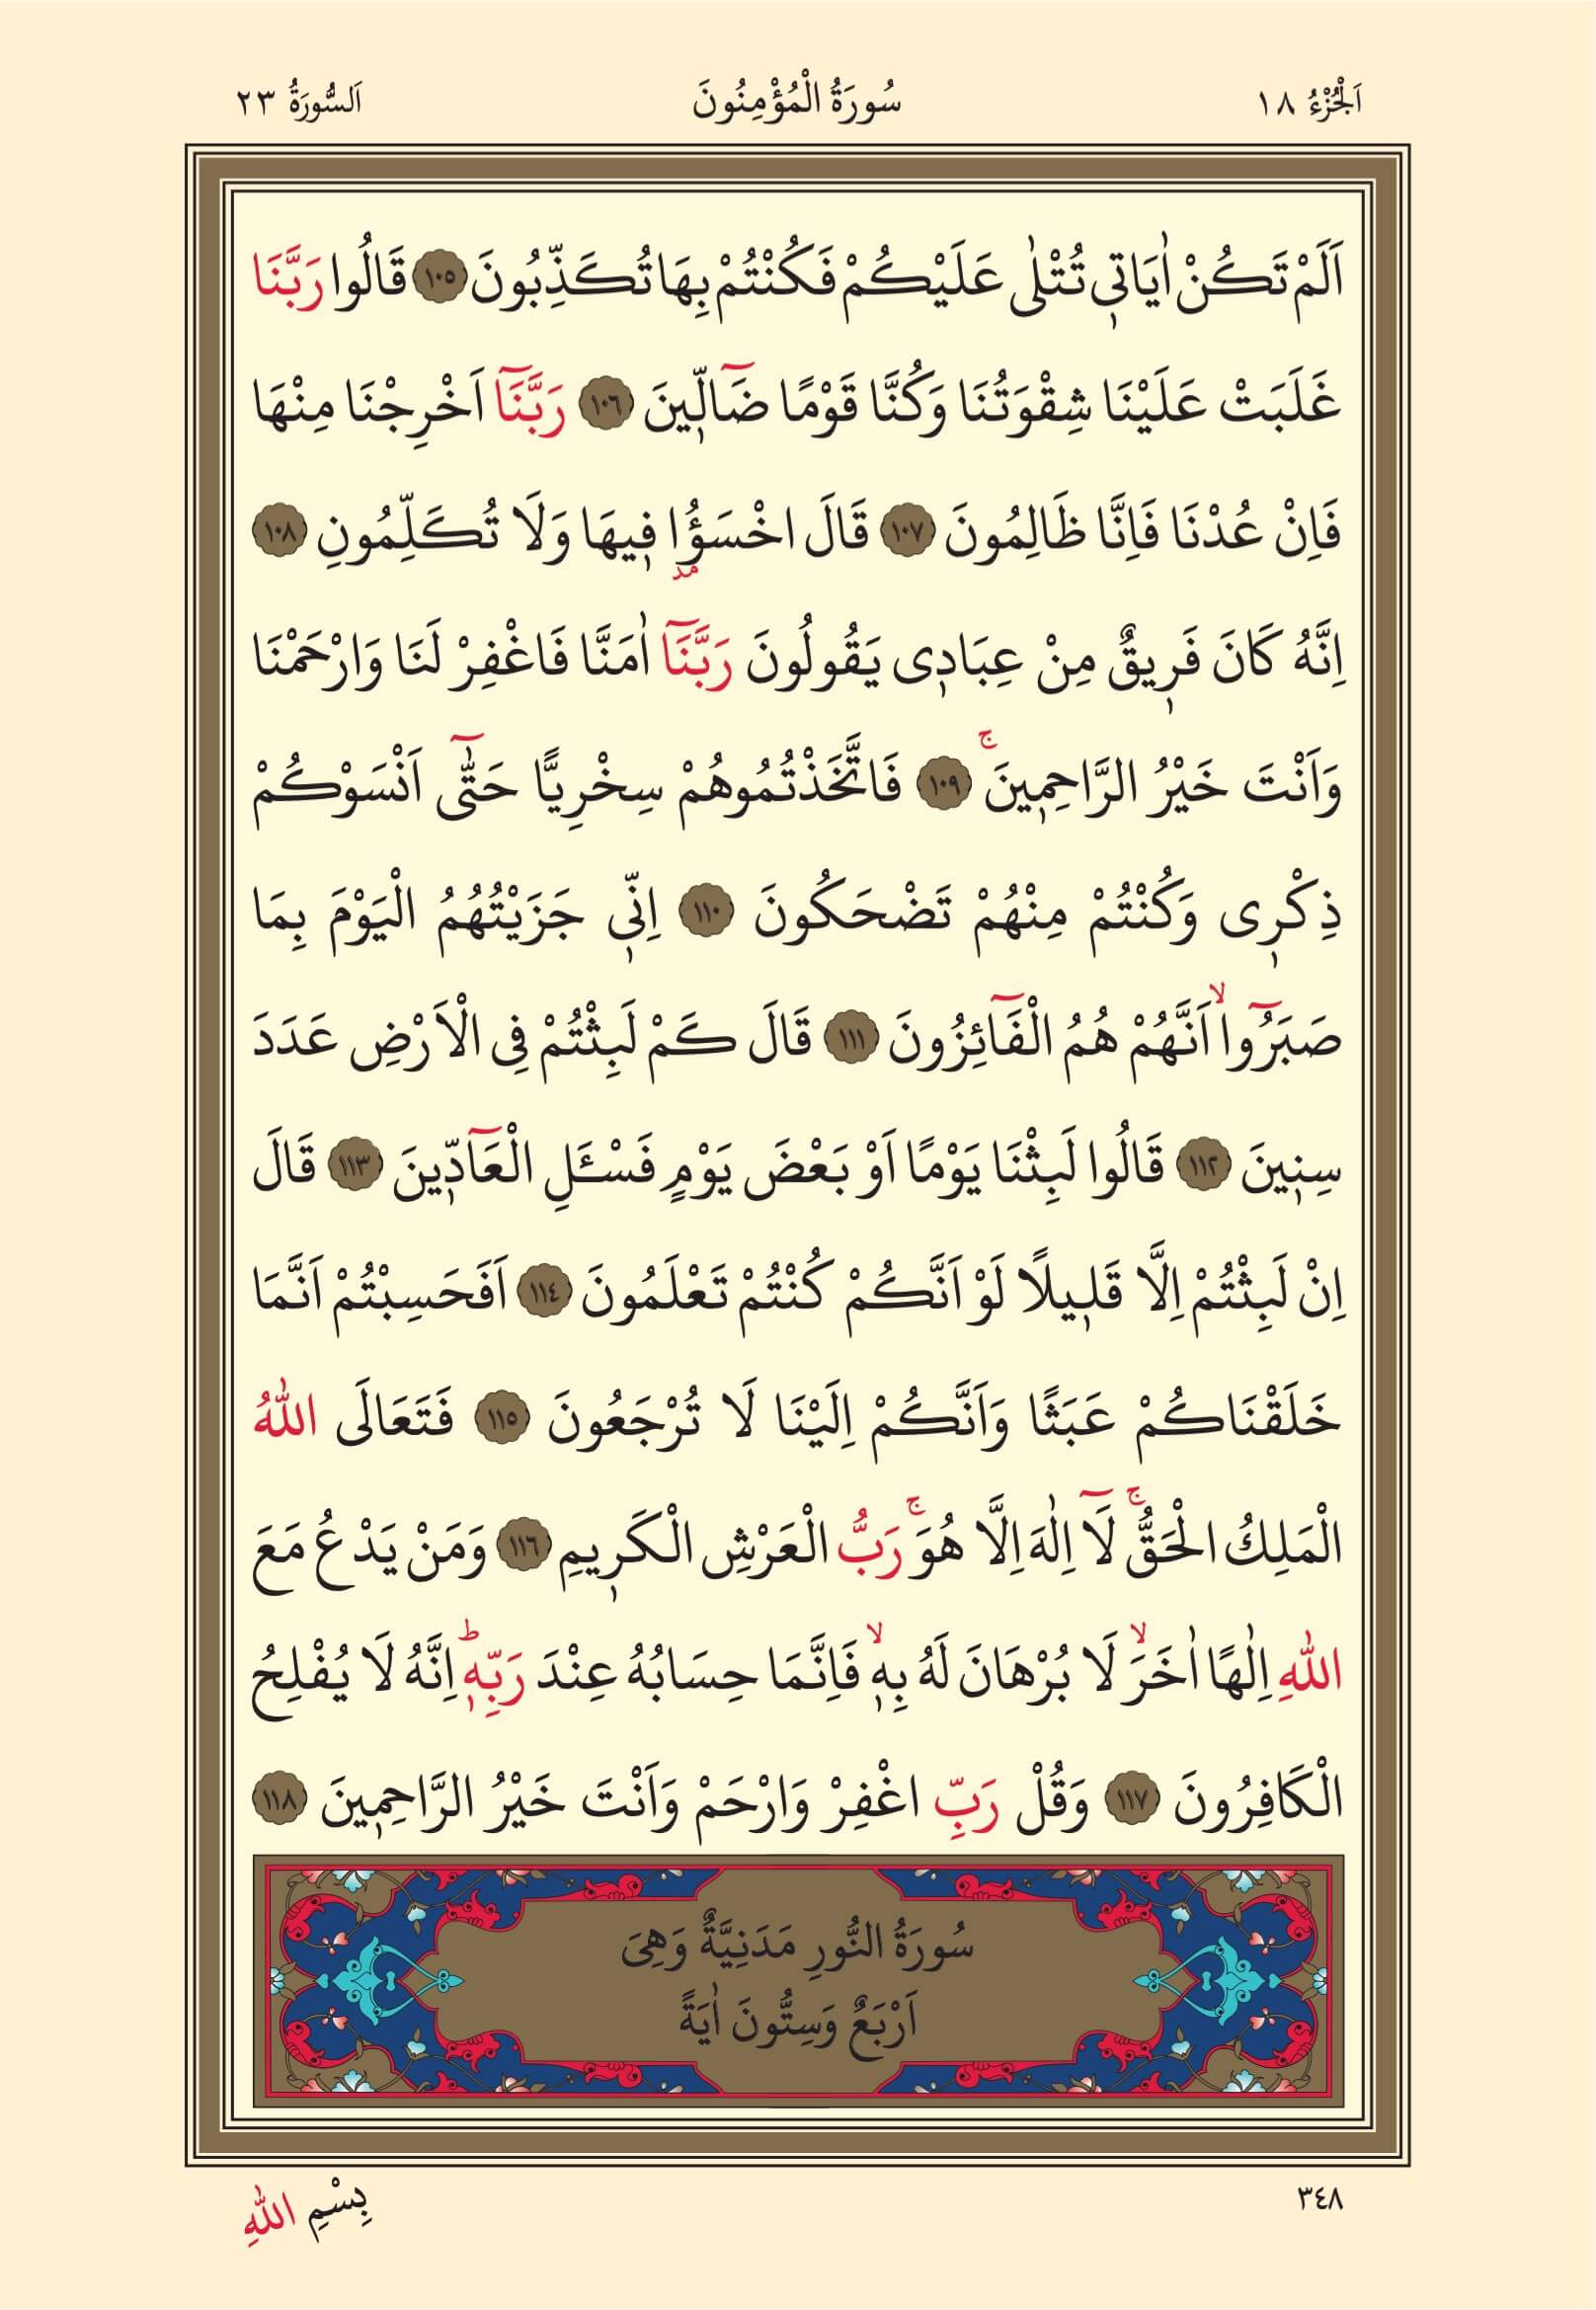 اَلْجُزْءُ ١٨ سُورَةُ الْمُؤْمِنُونَ اَلسُّورَةُ ٢٣
اَلَمْ تَكُنْ اٰيَاتٖي تُتْلٰى عَلَيْكُمْ فَكُنْتُمْ بِهَا تُكَذِّبُونَ ١٠٥ قَالُوا رَبَّنَا
غَلَبَتْ عَلَيْنَا شِقْوَتُنَا وَكُنَّا قَوْمًا ضَٓالّٖينَ ١٠٦ رَبَّنَٓا اَخْرِجْنَا مِنْهَا
فَاِنْ عُدْنَا فَاِنَّا ظَالِمُونَ ١٠٧ قَالَ اخْسَؤُ۫ا فٖيهَا وَلَا تُكَلِّمُونِ ١٠٨
اِنَّهُ كَانَ فَرٖيقٌ مِنْ عِبَادٖى يَقُولُونَ رَبَّنَٓا اٰمَنَّا فَاغْفِرْ لَنَا وَارْحَمْنَا
وَاَنْتَ خَيْرُ الرَّاحِمٖينَۚ ١٠٩ فَاتَّخَذْتُمُوهُمْ سِخْرِيًّا حَتّٰٓى اَنْسَوْكُمْ
ذِكْرٖى وَكُنْتُمْ مِنْهُمْ تَضْحَكُونَ ١١٠ اِنّٖى جَزَيْتُهُمُ الْيَوْمَ بِمَا
صَبَرُٓواۙ اَنَّهُمْ هُمُ الْفَٓائِزُونَ ١١١ قَالَ كَمْ لَبِثْتُمْ فِى الْاَرْضِ عَدَدَ
سِنٖينَ ١١٢ قَالُوا لَبِثْنَا يَوْمًا اَوْ بَعْضَ يَوْمٍ فَسْـَٔلِ الْعَٓادّٖينَ ١١٣ قَالَ
اِنْ لَبِثْتُمْ اِلَّا قَلٖيلًا لَوْ اَنَّكُمْ كُنْتُمْ تَعْلَمُونَ ١١٤ اَفَحَسِبْتُمْ اَنَّمَا
خَلَقْنَاكُمْ عَبَثًا وَاَنَّكُمْ اِلَيْنَا لَا تُرْجَعُونَ ١١٥ فَتَعَالَى اللّٰهُ
الْمَلِكُ الْحَقُّۚ لَٓا اِلٰهَ اِلَّا هُوَۚ رَبُّ الْعَرْشِ الْكَرٖيمِ ١١٦ وَمَنْ يَدْعُ مَعَ
اللّٰهِ اِلٰهًا اٰخَرَۙ لَا بُرْهَانَ لَهُ بِهٖۙ فَاِنَّمَا حِسَابُهُ عِنْدَ رَبِّهٖؕ اِنَّهُ لَا يُفْلِحُ
الْكَافِرُونَ ١١٧ وَقُلْ رَبِّ اغْفِرْ وَارْحَمْ وَاَنْتَ خَيْرُ الرَّاحِمٖينَ ١١٨
سُورَةُ النُّورِ مَدَنِيَّةٌ وَهِىَ
اَرْبَعٌ وَسِتُّونَ اٰيَةً
٣٤٨ بِسْمِ اللّٰهِ